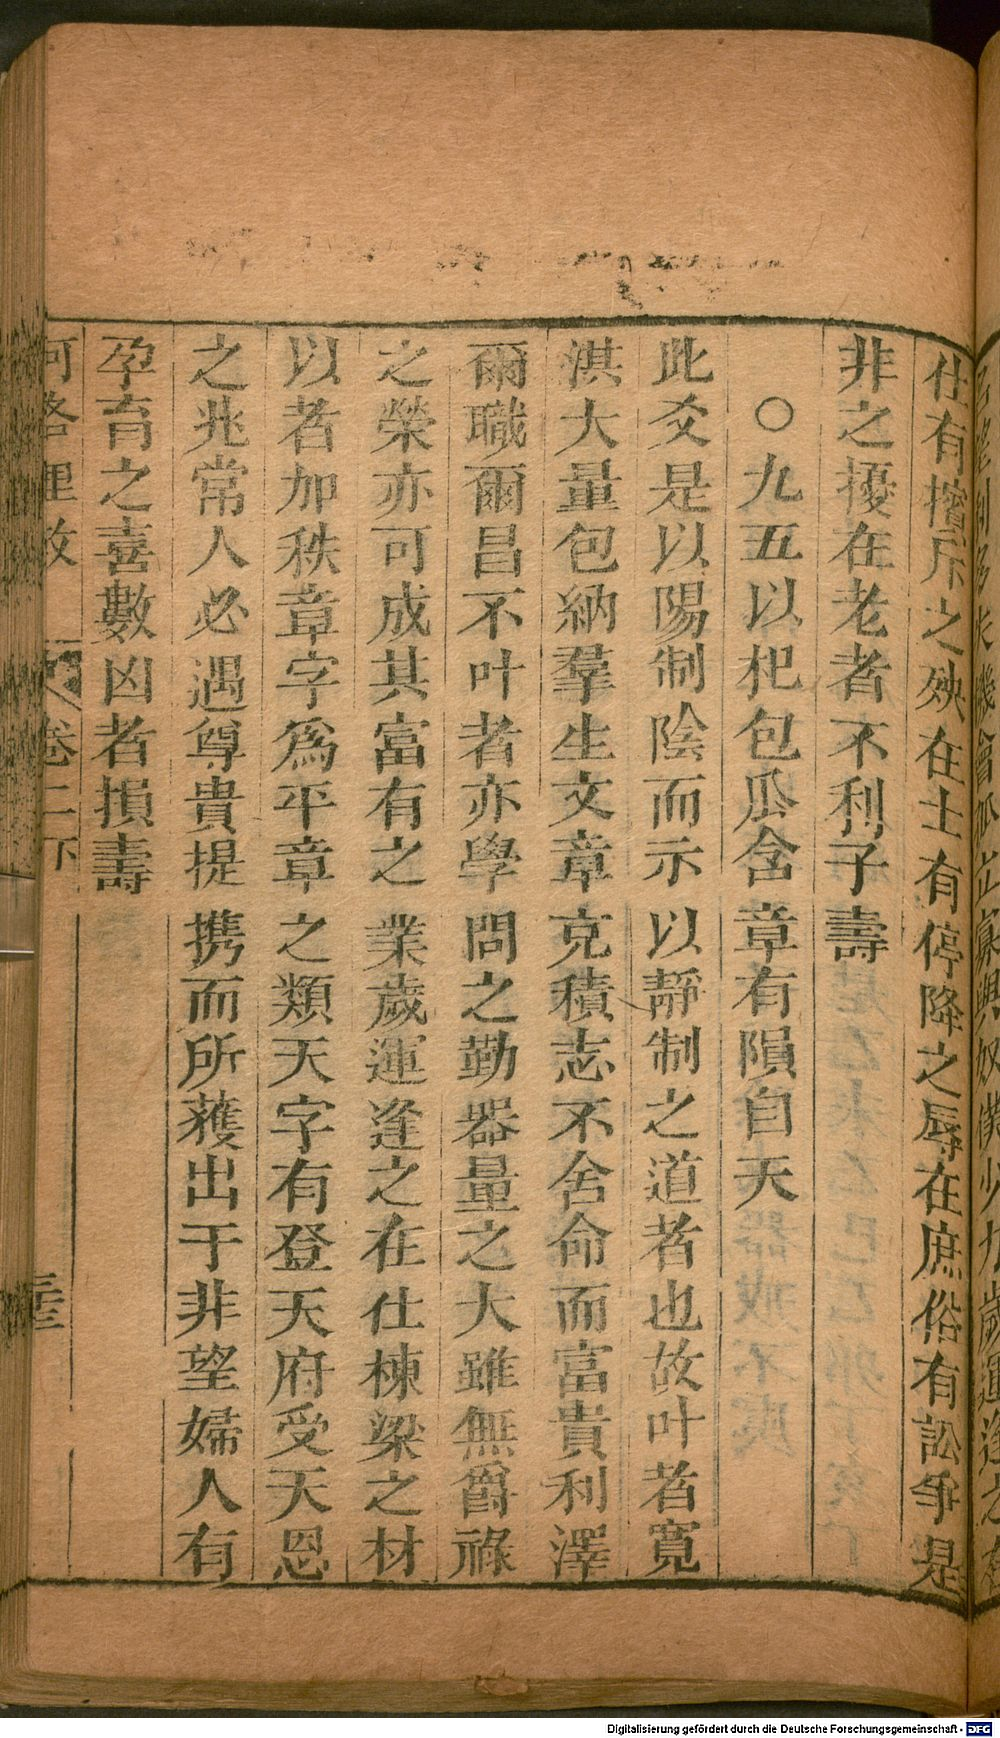 仕有擯斥之殃在士有停降之辱在庶俗有訟爭是
非之擾在老者不利子壽
○九五以杞包瓜含章有隕自天
此爻是以陽制陰而示以靜制之道者也故叶者寛
洪大量包納羣生文章克積志不舍命而富貴利澤
爾職爾昌不叶者亦學問之勤器量之大雖無爵祿
之榮亦可成其富有之業歲運逢之在仕棟梁之材
以者加秩章字爲平章之類天字有登天府受天恩
之兆常人必遇尊貴提携而所獲出于非望婦人有
孕育之喜數凶者損壽
河洛理数 卷二下
Digitalisierung gefördert durch die Deutsche Forschungsgemeinschaft - DFG